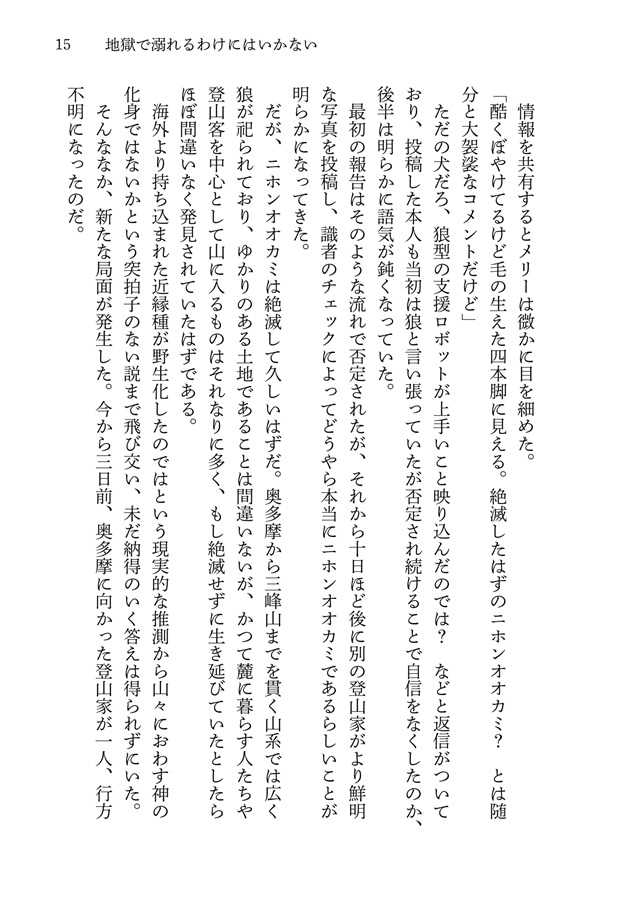 15　地獄で溺れるわけにはいかない
情報を共有するとメリーは微かに目を細めた。
「酷くぼやけてるけど毛の生えた四本脚に見える。絶滅したはずのニホンオオカミ？　とは随
分と大袈裟なコメントだけど」
ただの犬だろ、狼型の支援ロボットが上手いこと映り込んだのでは？　などと返信がついて
おり、投稿した本人も当初は狼と言い張っていたが否定され続けることで自信をなくしたのか、
後半は明らかに語気が鈍くなっていた。
最初の報告はそのような流れで否定されたが、それから十日ほど後に別の登山家がより鮮明
な写真を投稿し、識者のチェックによってどうやら本当にニホンオオカミであるらしいことが
明らかになってきた。
だが、ニホンオオカミは絶滅して久しいはずだ。奥多摩から三峰山までを貫く山系では広く
狼が祀られており、ゆかりのある土地であることは間違いないが、かつて麓に暮らす人たちや
登山客を中心として山に入るものはそれなりに多く、もし絶滅せずに生き延びていたとしたら
ほぼ間違いなく発見されていたはずである。
海外より持ち込まれた近縁種が野生化したのではという現実的な推測から山々におわす神の
化身ではないかという突拍子のない説まで飛び交い、未だ納得のいく答えは得られずにいた。
そんななか、新たな局面が発生した。今から三日前、奥多摩に向かった登山家が一人、行方
不明になったのだ。